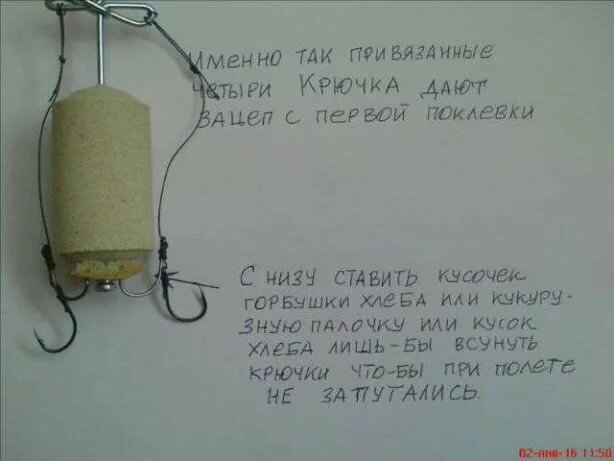 Именно так привязанные
четыри Крючка дают
зацеп с первой поклевки
С низу ставить кусочек
горбушки хлеба или кукуру-
зную палочку или кусок
хлеба лишь-бы всунуть
крючки что-бы при полете
не запутались.
02-янв-16 11:50